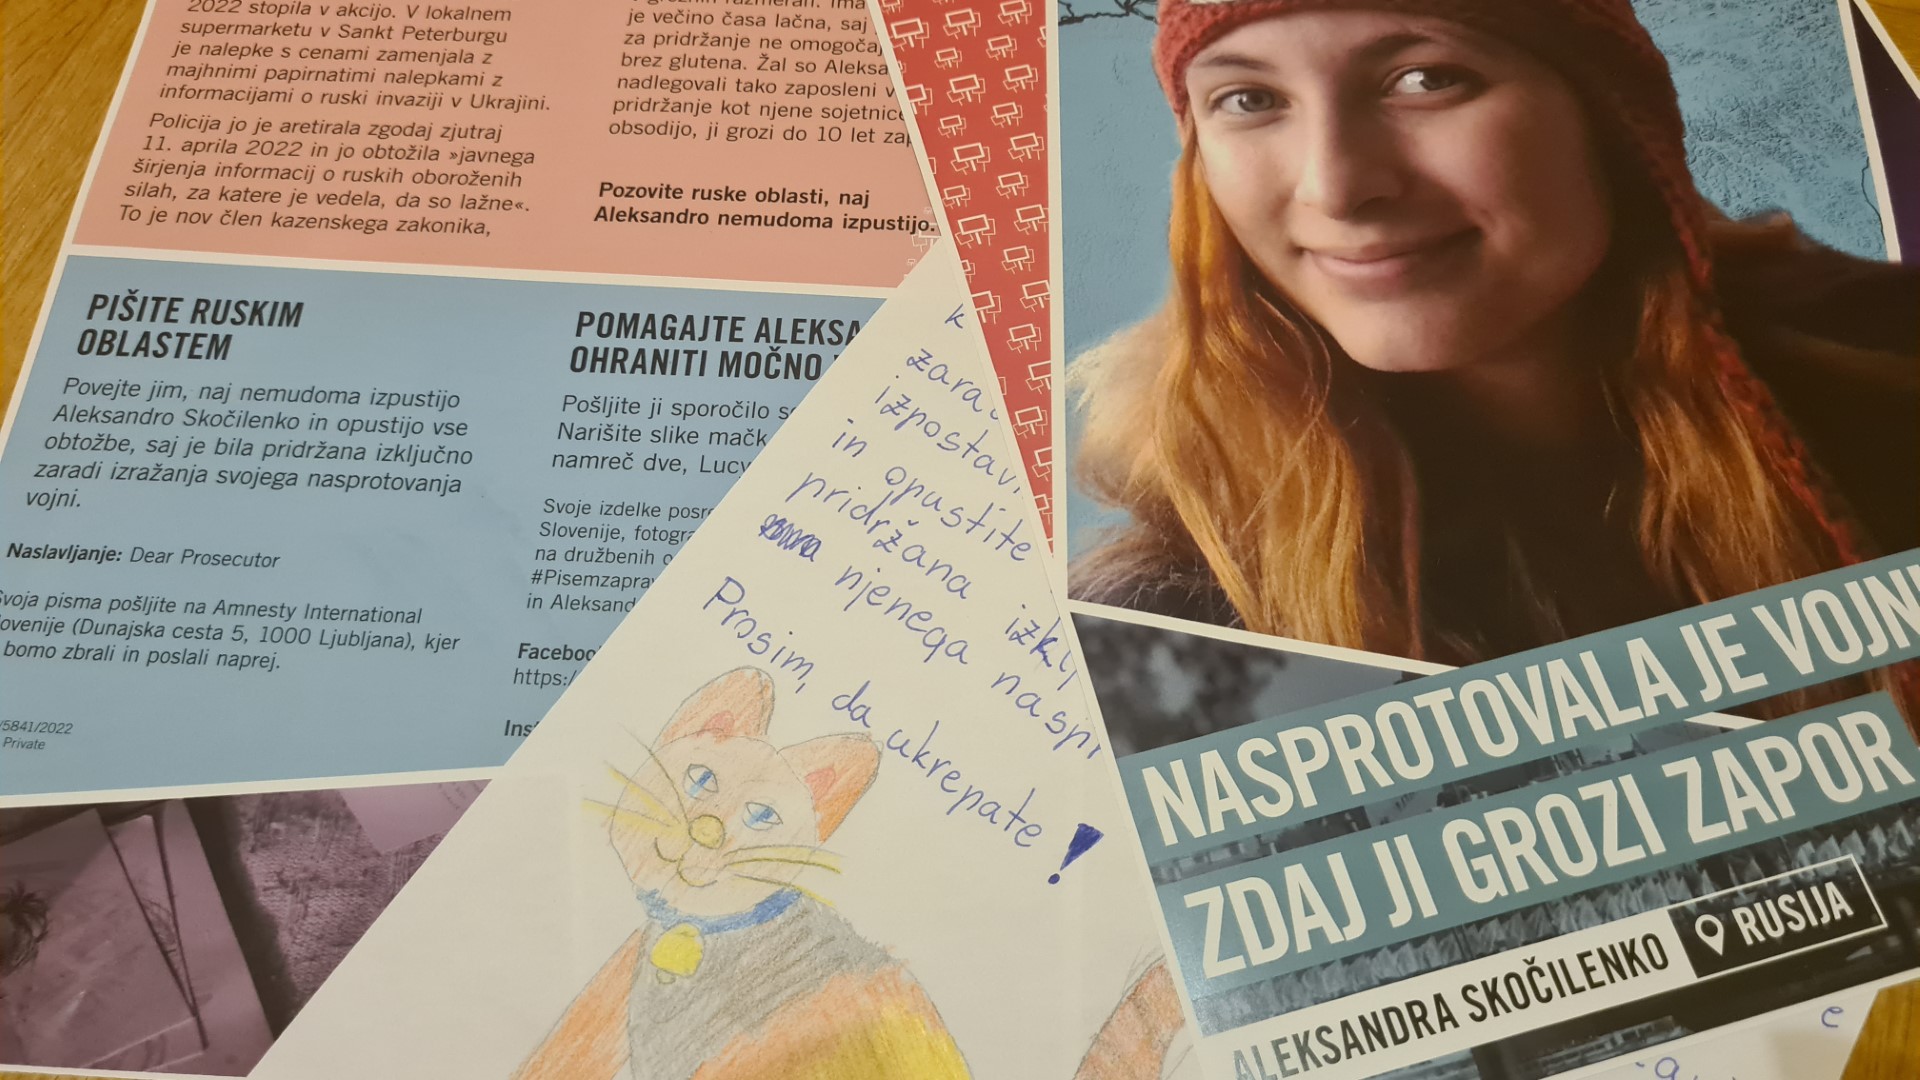 2022 stopila v akcijo. V lokalnem
supermarketu v Sankt Peterburgu
je nalepke s cenami zamenjala z
majhnimi papirnatimi nalepkami z
informacijami o ruski invaziji v Ukrajini.
Policija jo je aretirala zgodaj zjutraj
11. aprila 2022 in jo obtožila »javnega
širjenja informacij o ruskih oboroženih
silah, za katere je vedela, da so lažne«.
To je nov člen kazenskega zakonika,
je večino časa lačna, saj
za pridržanje ne omogočaj
brez glutena. Žal so Aleksa
nadlegovali tako zaposleni v
pridržanje kot njene sojetnice
obsodijo, ji grozi do 10 let zap
Pozovite ruske oblasti, naj
Aleksandro nemudoma izpustijo.
PIŠITE RUSKIM
OBLASTEM
Povejte jim, naj nemudoma izpustijo
Aleksandro Skočilenko in opustijo vse
obtožbe, saj je bila pridržana izključno
zaradi izražanja svojega nasprotovanja
vojni.
Naslavljanje: Dear Prosecutor
Svoja pisma pošljite na Amnesty International
ovenije (Dunajska cesta 5, 1000 Ljubljana), kjer
bomo zbrali in poslali naprej.
/5841/2022
Private
POMAGAJTE ALEKSA
OHRANITI MOČNO
Pošljite ji sporočilo so
Narišite slike mačk
namreč dve, Lucy
Svoje izdelke posre
Slovenije, fotogra
na družbenih o
#Pisemzaprav
in Aleksand
Faceboo
https:/
Ins
k
zara
izpostavi
in opustite
pridržana izklj
njenega naspr
Prosim, da ukrepate!
NASPROTOVALA JE VOJNI
ZDAJ JI GROZI ZAPOR
ALEKSANDRA SKOČILENKO RUSIJA
e